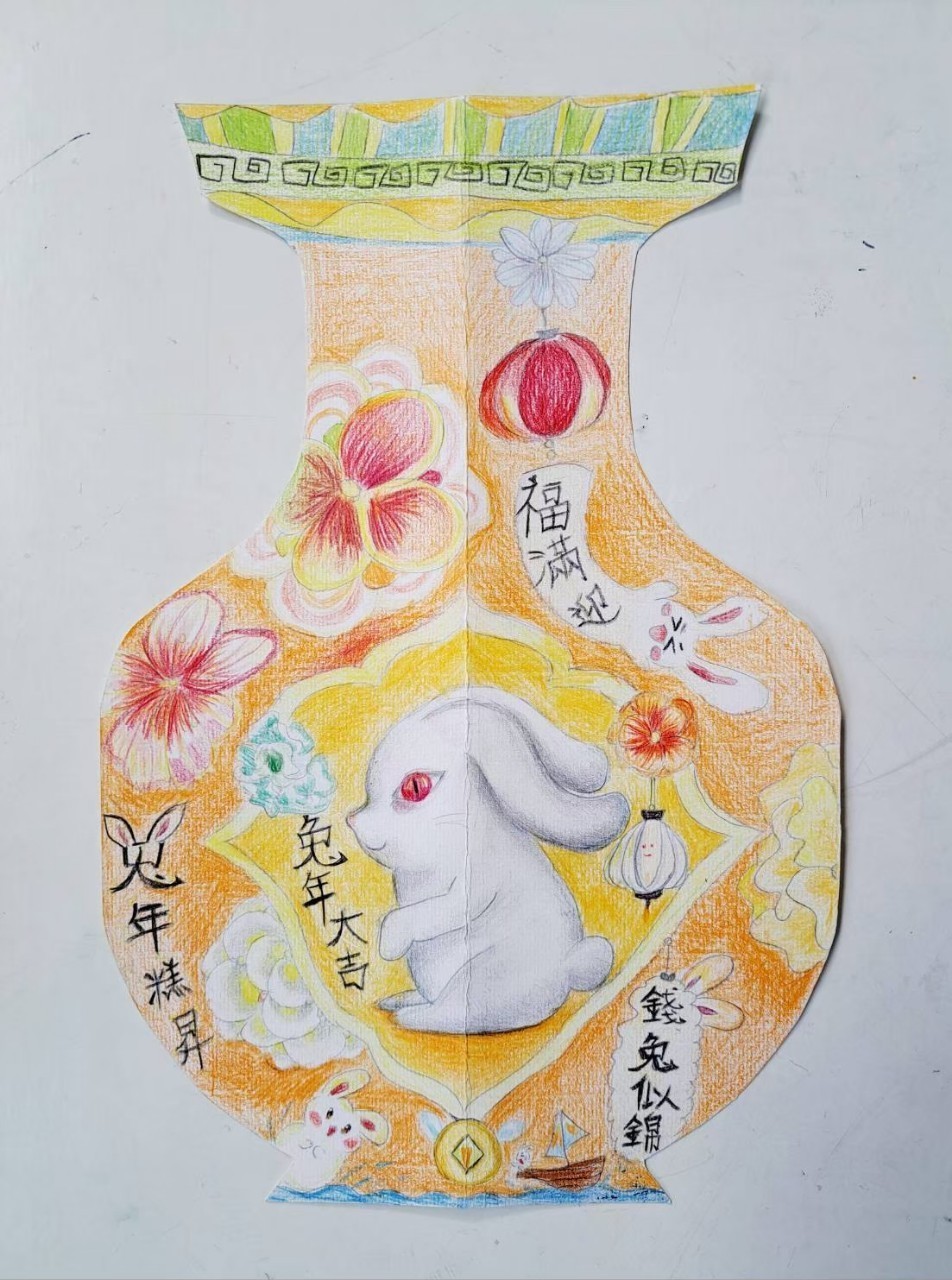 福滿迎
兔年大吉
兔年糕昇
錢兔似錦